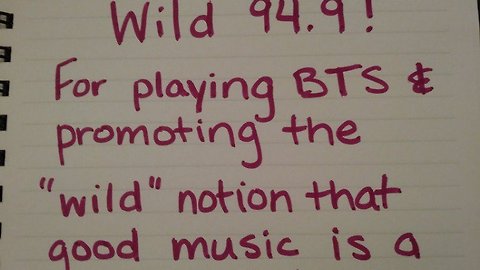 Wild 94.9!
For playing BTS &
promoting the
"wild" notion that
good music is a